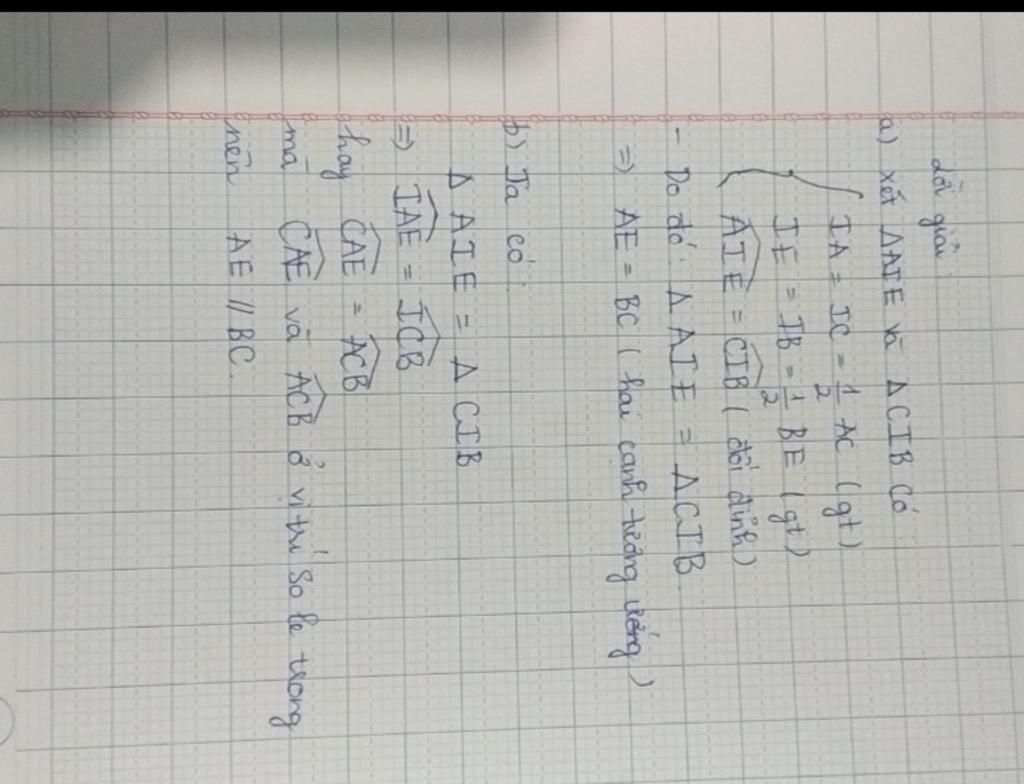 Lời giải
a) xét ΔAIE và ΔCIB có
IA = IC = 1/2 AC (gt)
IE = IB = 1/2 BE (gt)
\widehat{AIE} = \widehat{CIB} (đối đỉnh)
- Do đó: ΔAIE = ΔCIB
=> AE = BC (hai cạnh tương ứng)
b) Ta có:
ΔAIE = ΔCIB
=> \widehat{IAE} = \widehat{ICB}
hay \widehat{CAE} = \widehat{ACB}
mà \widehat{CAE} và \widehat{ACB} ở vị trí so le trong
nên AE // BC.